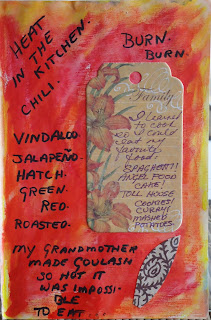 HEAT
IN THE
KITCHEN.
CHILI.
BURN.
BURN.
VINDALOO.
JALAPEÑO.
HATCH.
GREEN.
RED.
ROASTED.
Family
I learned
to cook
so I could
eat my
favorite
food.
SPAGHETTI!
ANGEL FOOD
CAKE!
TOLL HOUSE
COOKIES!
CURRY!
MASHED
POTATOES.
MY GRANDMOTHER
MADE GOULASH
SO HOT IT
WAS IMPOSSI-
BLE
TO EAT.